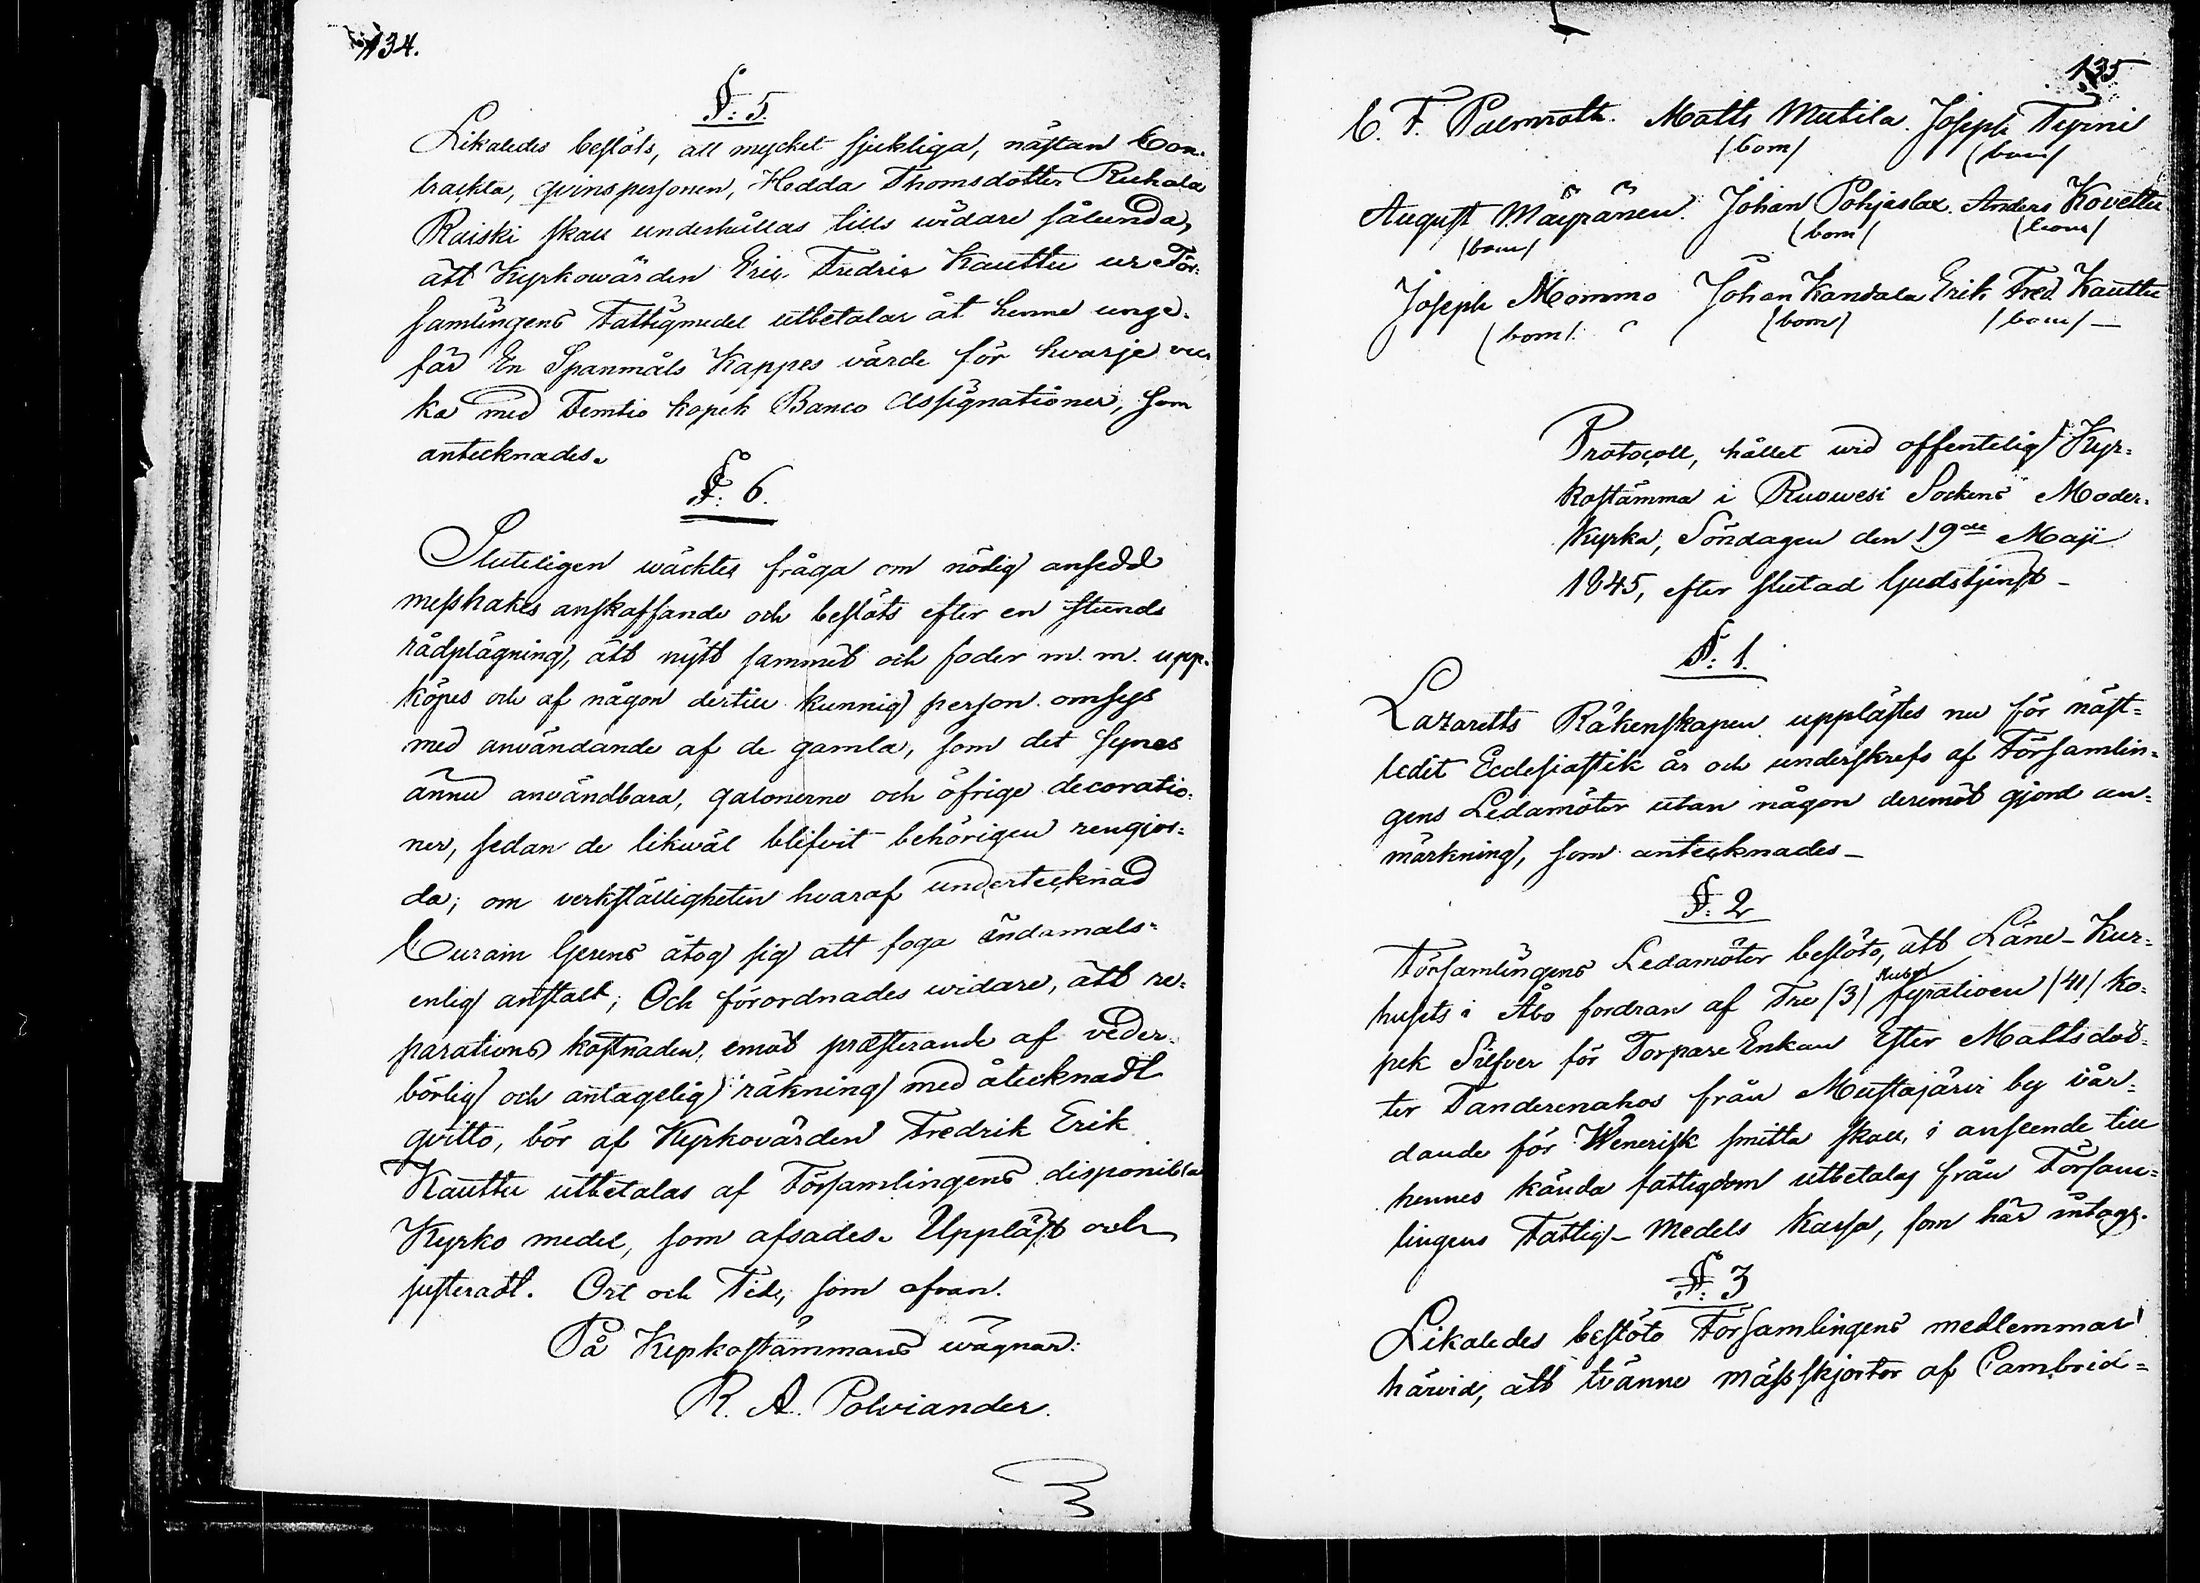 134.
§: 5.
Likaledes beslöts, att mycket sjukliga, nästan Con-
trackta, qvinspersonen, Hedda Thomsdotter Ruhala
Raiski skall underhållas tills widare sålunda,
att Kyrkowärden Eric Fredric Kauttu ur För-
samlingens Fattigmedel utbetalar åt henne unge-
fär En Spanmåls Kappes värde för hvarje vec-
ka med Femtio kopek Banco Assignationer, som
antecknades.
§: 6.
Sluteligen wäcktes fråga om nödig ansedd
messhakes anskaffande och beslöts efter en stunds
rådplägning, att nytt sammet och foder m. m. upp-
köpes och af någon dertill kunnig person omsys
med användande af de gamla, som det synes
ännu användbara, galonerne och öfrige decoratio-
ner, sedan de likwäl blifvit behörigen rengjor-
da; om verkställigheten hvaraf undertecknad
Curam Gerens åtog sig att foga ändamals-
enlig anstalt; Och förordnades widare, att re-
parations kostnaden, emot præsterande af veder-
börlig och antagelig räkning med åtecknadt
qvitto, bör af Kyrkovärden Fredrik Erik
Kauttu utbetalas af Församlingens disponibla
Kyrko medel, som afsades. Uppläst och
justeradt. Ort och Tid, som ofvan.
På Kyrkostämmans wägnar:
R. A. Polviander.
135
C. F. Palmroth. Matts Mutila. Joseph Tyrni
(bom) (bom)
August Mäyränen. Johan Pohjaslax. Anders Kovettu
(bom) (bom) (bom)
Joseph Mommo Johan Kandala Erik Fred. Kauttu
(bom). (bom) (bom) —
Protocoll, hållet wid offentelig Kyr-
kostämma i Ruowesi Sockens Moder-
Kyrka, Söndagen den 19de Maji
1845, efter slutad Gudstjenst -
§: 1.
Lazaretts Räkenskapen upplästes nu för näst-
ledit Ecclesiastik år och underskrefs af Församlin-
gens Ledamöter utan någon deremot gjord an-
märkning, som antecknades -
§: 2
Församlingens Ledamöter beslöto, att Läne-Kur-
Rubel
husets i Åbo fordran af Tre (3) fyratioen (41) ko-
pek Silfver för Torpare Enkan Ester Mattsdot-
ter Tanderenahos från Mustajärvi by vår-
dande för Wenerisk smitta skall, i anseende till
hennes kända fattigdom utbetalas från Försam-
lingens Fattig-Medels Kassa, som här intogs.
§: 3
Likaledes beslöto Församlingens medlemmar
härvid, att tvänne mässskjortor af Cambrid-